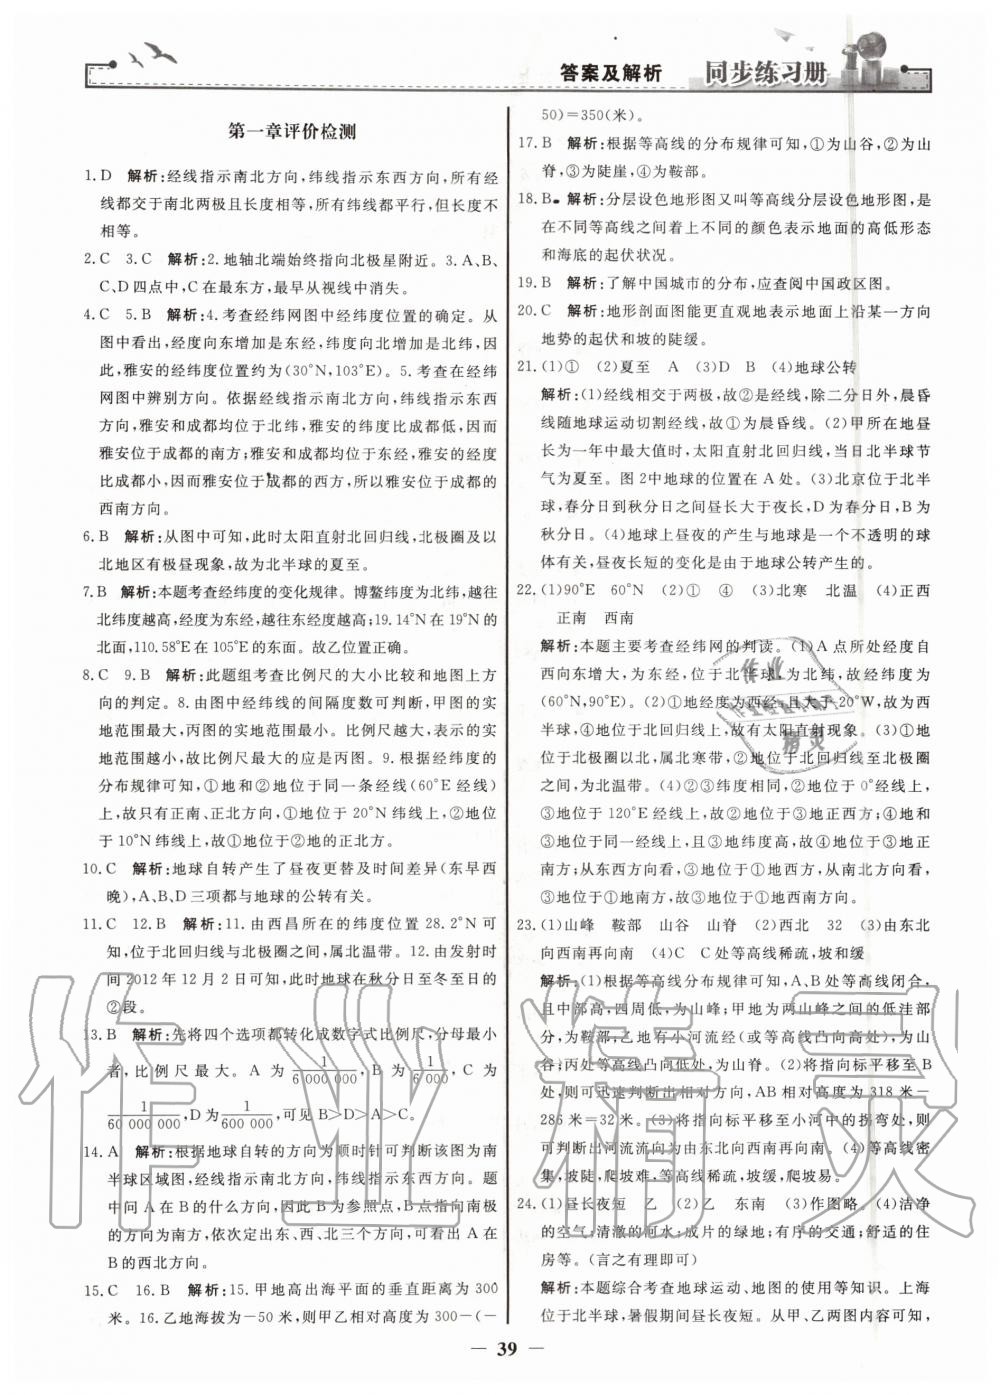 答案及解析 同步练习册
第一章评价检测
1.D 解析:经线指示南北方向,纬线指示东西方向,所有经
线都交于南北两极且长度相等,所有纬线都平行,但长度不
相等。
2.C 3.C 解析:2.地轴北端始终指向北极星附近。3.A、B、
C、D四点中,C在最东方,最早从视线中消失。
4.C 5.B 解析:4.考查经纬网图中经纬度位置的确定。从
图中看出,经度向东增加是东经,纬度向北增加是北纬,因
此,雅安的经纬度位置约为(30°N,103°E)。5.考查在经纬
网图中辨别方向。依据经线指示南北方向,纬线指示东西
方向,雅安和成都均位于北纬,雅安的纬度比成都低,因而
雅安位于成都的南方;雅安和成都均位于东经,雅安的经度
比成都小,因而雅安位于成都的西方,所以雅安位于成都的
西南方向。
6.B 解析:从图中可知,此时太阳直射北回归线,北极圈及以
北地区有极昼现象,故为北半球的夏至。
7.B 解析:本题考查经纬度的变化规律。博鳌纬度为北纬,越往
北纬度越高,经度为东经,越往东经度越高;19.14°N在19°N的
北面,110.58°E在105°E的东面。故乙位置正确。
8.C 9.B 解析:此题组考查比例尺的大小比较和地图上方
向的判定。8.由图中经纬线的间隔度数可判断,甲图的实
地范围最大,丙图的实地范围最小。比例尺越大,表示的实
地范围越小,故比例尺最大的应是丙图。9.根据经纬度的
分布规律可知,①地和②地位于同一条经线(60°E经线)
上,故只有正南、正北方向,①地位于20°N纬线上,②地位
于10°N纬线上,故①地位于②地的正北方。
10.C 解析:地球自转产生了昼夜更替及时间差异(东早西
晚),A、B、D三项都与地球的公转有关。
11.C 12.B 解析:11.由西昌所在的纬度位置28.2°N可
知,位于北回归线与北极圈之间,属北温带。12.由发射时
间2012年12月2日可知,此时地球在秋分日至冬至日的
②段。
13.B 解析:先将四个选项都转化成数字式比例尺,分母最小
者,比例尺最大。A为1/6 000 000,B为1/6 000,C为
1/60 000 000,D为1/600 000,可见B>D>A>C。
14.A 解析:根据地球自转的方向为顺时针可判断该图为南
半球区域图,经线指示南北方向,纬线指示东西方向。题
中问A在B的什么方向,因此B为参照点,B指向南极
的方向为南方,由此定出东、西、北三个方向,可看出A在
B的西北方向。
15.C 16.B 解析:15.甲地高出海平面的垂直距离为300
米。16.乙地海拔为-50米,则甲乙相对高度为300-(-
50)=350(米)。
17.B 解析:根据等高线的分布规律可知,①为山谷,②为山
脊,③为陡崖,④为鞍部。
18.B 解析:分层设色地形图又叫等高线分层设色地形图,是
在不同等高线之间着上不同的颜色表示地面的高低形态
和海底的起伏状况。
19.B 解析:了解中国城市的分布,应查阅中国政区图。
20.C 解析:地形剖面图能更直观地表示地面上沿某一方向
地势的起伏和坡的陡缓。
21.(1)① (2)夏至 A (3)D B (4)地球公转
解析:(1)经线相交于两极,故②是经线,除二分日外,晨昏
线随地球运动切割经线,故①为晨昏线。(2)甲所在地昼
长为一年中最大值时,太阳直射北回归线,当日北半球节
气为夏至。图2中地球的位置在A处。(3)北京位于北半
球,春分日到秋分日之间昼长大于夜长,D为春分日,B为
秋分日。(4)地球上昼夜的产生与地球是一个不透明的球
体有关,昼夜长短的变化是由于地球公转产生的。
22.(1)90°E 60°N (2)① ④ (3)北寒 北温 (4)正西
正南 西南
解析:本题主要考查经纬网的判读。(1)A点所处经度自
西向东增大,为东经,位于北半球,为北纬,故经纬度为
(60°N,90°E)。(2)①地经度为西经,且大于20°W,故为西
半球,④地位于南回归线上,故有太阳直射现象。(3)①地
位于北极圈以北,属北寒带,②地位于北回归线至北极圈
之间,属北温带。(4)②③纬度相同,②地位于0°经线上,
③地位于120°E经线上,故②地位于③地正西方;④地与
③地位于同一经线上,且③地纬度高,故④地位于③地正
南方;从东西方向看,③地位于①地西方,从南北方向看,
③地位于①地南方,故③地位于①地西南方向。
23.(1)山峰 鞍部 山谷 山脊 (2)西北 32 (3)由东北
向西南再向南 (4)C C处等高线稀疏,坡和缓
解析:(1)根据等高线分布规律可知,A、B处等高线闭合,
且中部高,四周低,为山峰;甲地为两山峰之间的低洼部
分,为鞍部,乙地有小河流经(或等高线凸向高处),为山
谷;丙处等高线凸向低处,为山脊。(2)将指向标平移至B
处,则可迅速判断出相对方向,AB相对高度为318米-
286米=32米。(3)将指向标平移至小河中的拐弯处,则
可判断出河流流向为由东北向西南再向南。(4)等高线密
集,坡陡,爬坡难,等高线稀疏,坡缓,爬坡易。
24.(1)昼长夜短 乙 (2)乙 东南 (3)作图略。(4)洁净
的空气;清澈的河水;成片的绿地;有序的交通;舒适的住
房等。(言之有理即可)
解析:本题综合考查地球运动、地图的使用等知识。上海
位于北半球,暑假期间昼长夜短。从甲、乙两图内容可知,
— 39 —
作业精灵